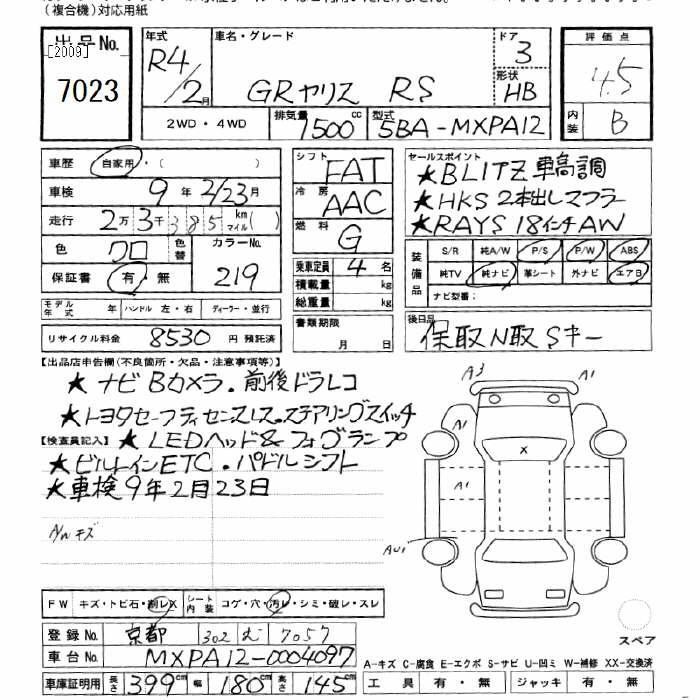 (複合機)対応用紙
出品No. [2009] 7023
年式 R4/2月
車名・グレード GRヤリス RS
ドア 3
形状 HB
評価点 4.5
内装 B
2WD・4WD
排気量 1500cc
型式 5BA-MXPA12
車歴 自家用・( )
車検 9年2/23月
走行 2万3千385km マイル( )
色 クロ 色替 カラーNo. 219
保証書 有・無
モデル年式 年 ハンドル 左・右 ディーラー・並行
リサイクル料金 8530円 預託済
シフト FAT
冷房 AAC
燃料 G
乗車定員 4名
積載量 kg
総重量 kg
書類期限 月 日
セールスポイント
★BLITZ 車高調
★HKS 2本出しマフラー
★RAYS 18インチAW
装備品 S/R 純A/W P/S P/W ABS
純TV 純ナビ 革シート 外ナビ エアB
ナビ型番:
後日品
保取N取Sキー
【出品店申告欄(不良箇所・欠品・注意事項等)】
★ナビBカメラ.前後ドラレコ
★トヨタセーフティセンスレス.ステアリングスイッチ
【検査員記入】★LEDヘッド&フォグランプ
★ビルトインETC.パドルシフト
★車検9年2月23日
A/Wキズ
A3 A1
A1
A1
AU1
X
FW キズ・トビ石・割レX シート内装 コゲ・穴・汚レ・シミ・破レ・スレ
登録No. 京都 302 む 7057
車台No. MXPA12-0004097
車庫証明用 長さ 399cm 幅 180cm 高さ 145cm
スペア
A-キズ C-腐食 E-エクボ S-サビ U-凹ミ W-補修 XX-交換済
工具 有・無 ジャッキ 有・無